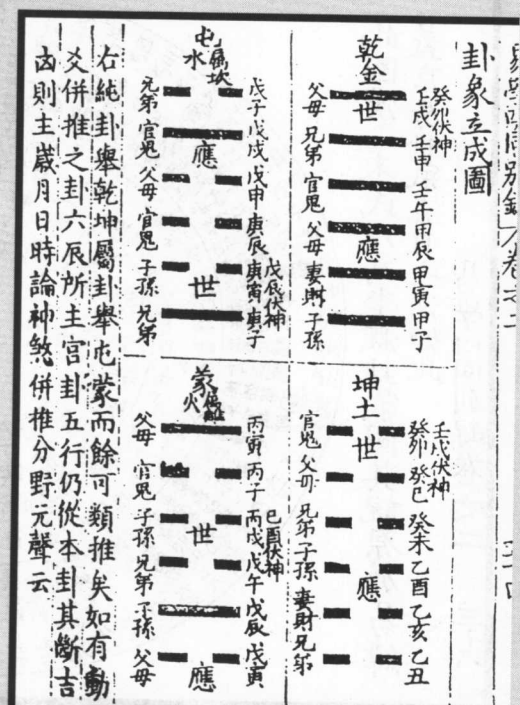 卦象立成圖
乾金
癸卯伏神
壬戌 壬申 壬午 甲辰 甲寅 甲子
世 應
父母 兄弟 官鬼 父母 妻財 子孫
坤土
壬戌伏神
癸卯 癸巳 癸未 乙酉 乙亥 乙丑
世 應
官鬼 父母 兄弟 子孫 妻財 兄弟
屯屬坎水
戊子 戊戌 戊申 庚辰 庚寅 庚子
戊辰伏神
應 世
兄弟 官鬼 父母 官鬼 子孫 兄弟
蒙屬離火
丙寅 丙子 丙戌 戊午 戊辰 戊寅
己酉伏神
世 應
父母 官鬼 子孫 兄弟 子孫 父母
右純卦舉乾坤屬卦舉屯蒙而餘可類推矣如有動
爻併推之卦六辰所主官卦五行仍從本卦其斷吉
凶則主歲月日時論神煞併推分野元聲云